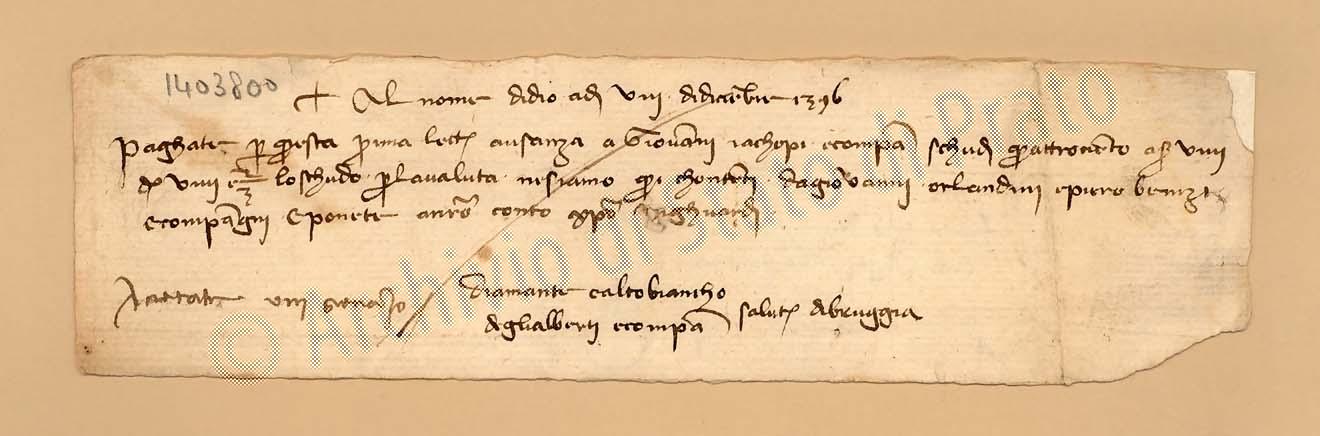 1403800
+ Al nome didio adi viii di dicienbre 1396
Paghate per questa prima letera a usanza a Giovanni iachopi e compa schudi quattrociento a s viiii
d viiii e 1/2 lo schudo per la valuta nesiamo qui chontenti da giovanni orlandini e piero benizi
e compangni e ponete a nostro conto xpo vi ghuardi
Diamante e altobiancho
Aciettate viii gienaio
degli alberti e compa salute di bruggia
© Archivio di Stato di Prato